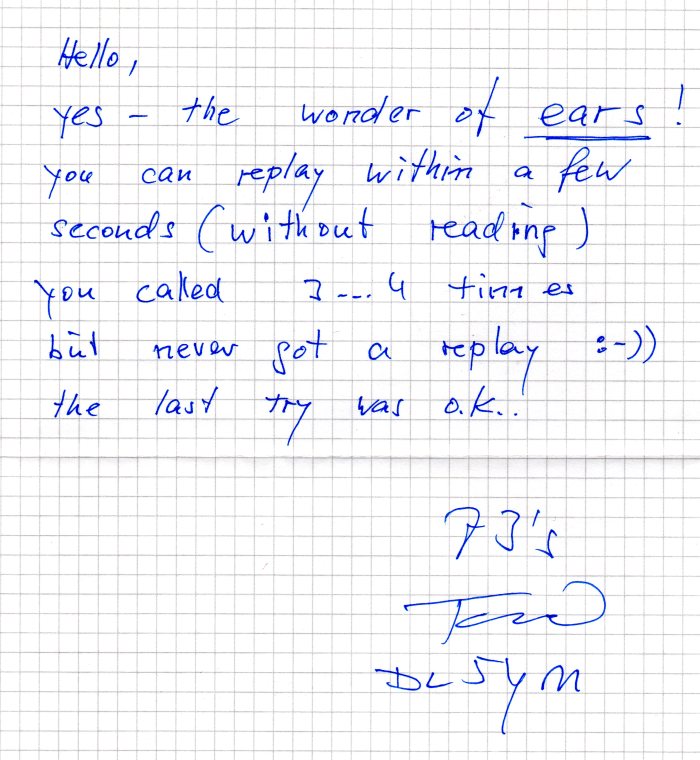 Hello,
yes – the wonder of ears!
you can replay within a few
seconds (without reading)
you called 3...4 times
but never got a replay :-))
the last try was o.k..
73's
DL5YM